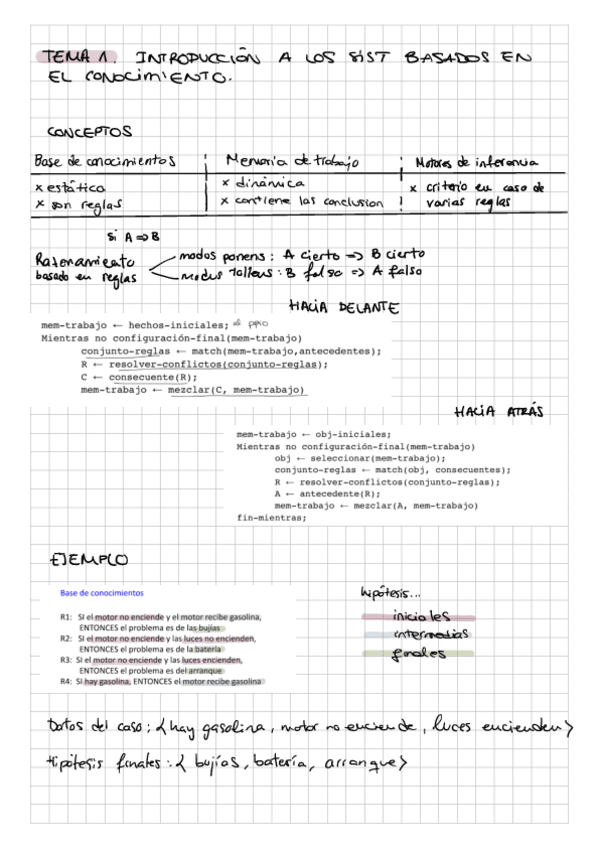 TEMA 1. INTRODUCCIÓN A LOS SIST BASADOS EN
EL CONOCIMIENTO.
CONCEPTOS
Base de conocimientos
x estática
x son reglas
Memoria de trabajo
x dinámica
x contiene las conclusion
Motores de inferencia
x criterio en caso de
varias reglas
Si A => B
Razonamiento
basado en reglas
modus ponens: A cierto => B cierto
modus tollens: B falso => A falso
HACIA DELANTE
mem-trabajo ← hechos-iniciales; al ppio
Mientras no configuración-final(mem-trabajo)
conjunto-reglas ← match(mem-trabajo,antecedentes);
R ← resolver-conflictos(conjunto-reglas);
C ← consecuente(R);
mem-trabajo ← mezclar(C, mem-trabajo)
HACIA ATRÁS
mem-trabajo ← obj-iniciales;
Mientras no configuración-final(mem-trabajo)
obj ← seleccionar(mem-trabajo);
conjunto-reglas ← match(obj, consecuentes);
R ← resolver-conflictos(conjunto-reglas);
A ← antecedente(R);
mem-trabajo ← mezclar(A, mem-trabajo)
fin-mientras;
EJEMPLO
Base de conocimientos
R1: SI el motor no enciende y el motor recibe gasolina,
ENTONCES el problema es de las bujías
R2: SI el motor no enciende y las luces no encienden,
ENTONCES el problema es de la batería
R3: SI el motor no enciende y las luces encienden,
ENTONCES el problema es del arranque
R4: SI hay gasolina, ENTONCES el motor recibe gasolina
hipótesis...
iniciales
intermedias
finales
Datos del caso: {hay gasolina, motor no enciende, luces encienden}
Hipótesis finales: { bujías, batería, arranque}